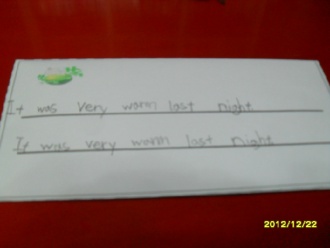 It was very warm last night
It was very warm last night
2012/12/22